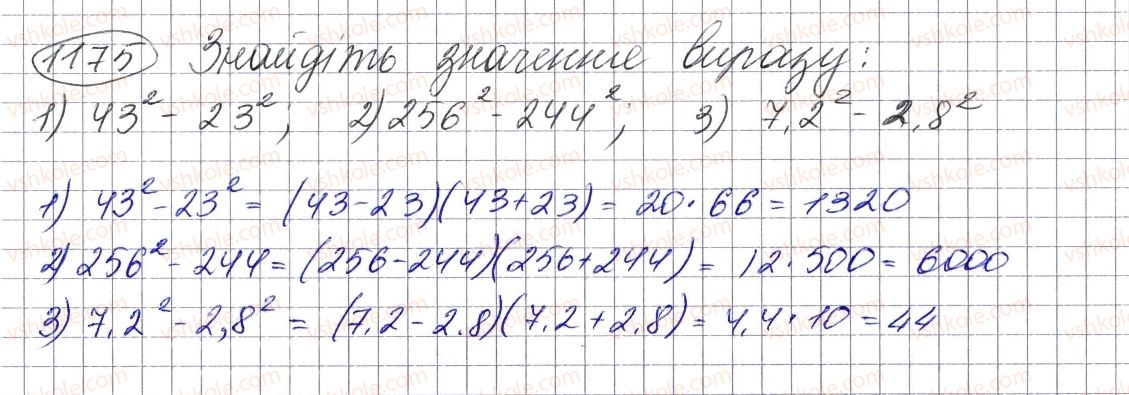 1175 Знайдіть значення виразу:
1) 43² - 23²; 2) 256² - 244²; 3) 7,2² - 2,8²
1) 43² - 23² = (43-23)(43+23) = 20·66 = 1320
2) 256² - 244 = (256-244)(256+244) = 12·500 = 6000
3) 7,2² - 2,8² = (7,2 - 2.8)(7,2 + 2,8) = 4,4·10 = 44